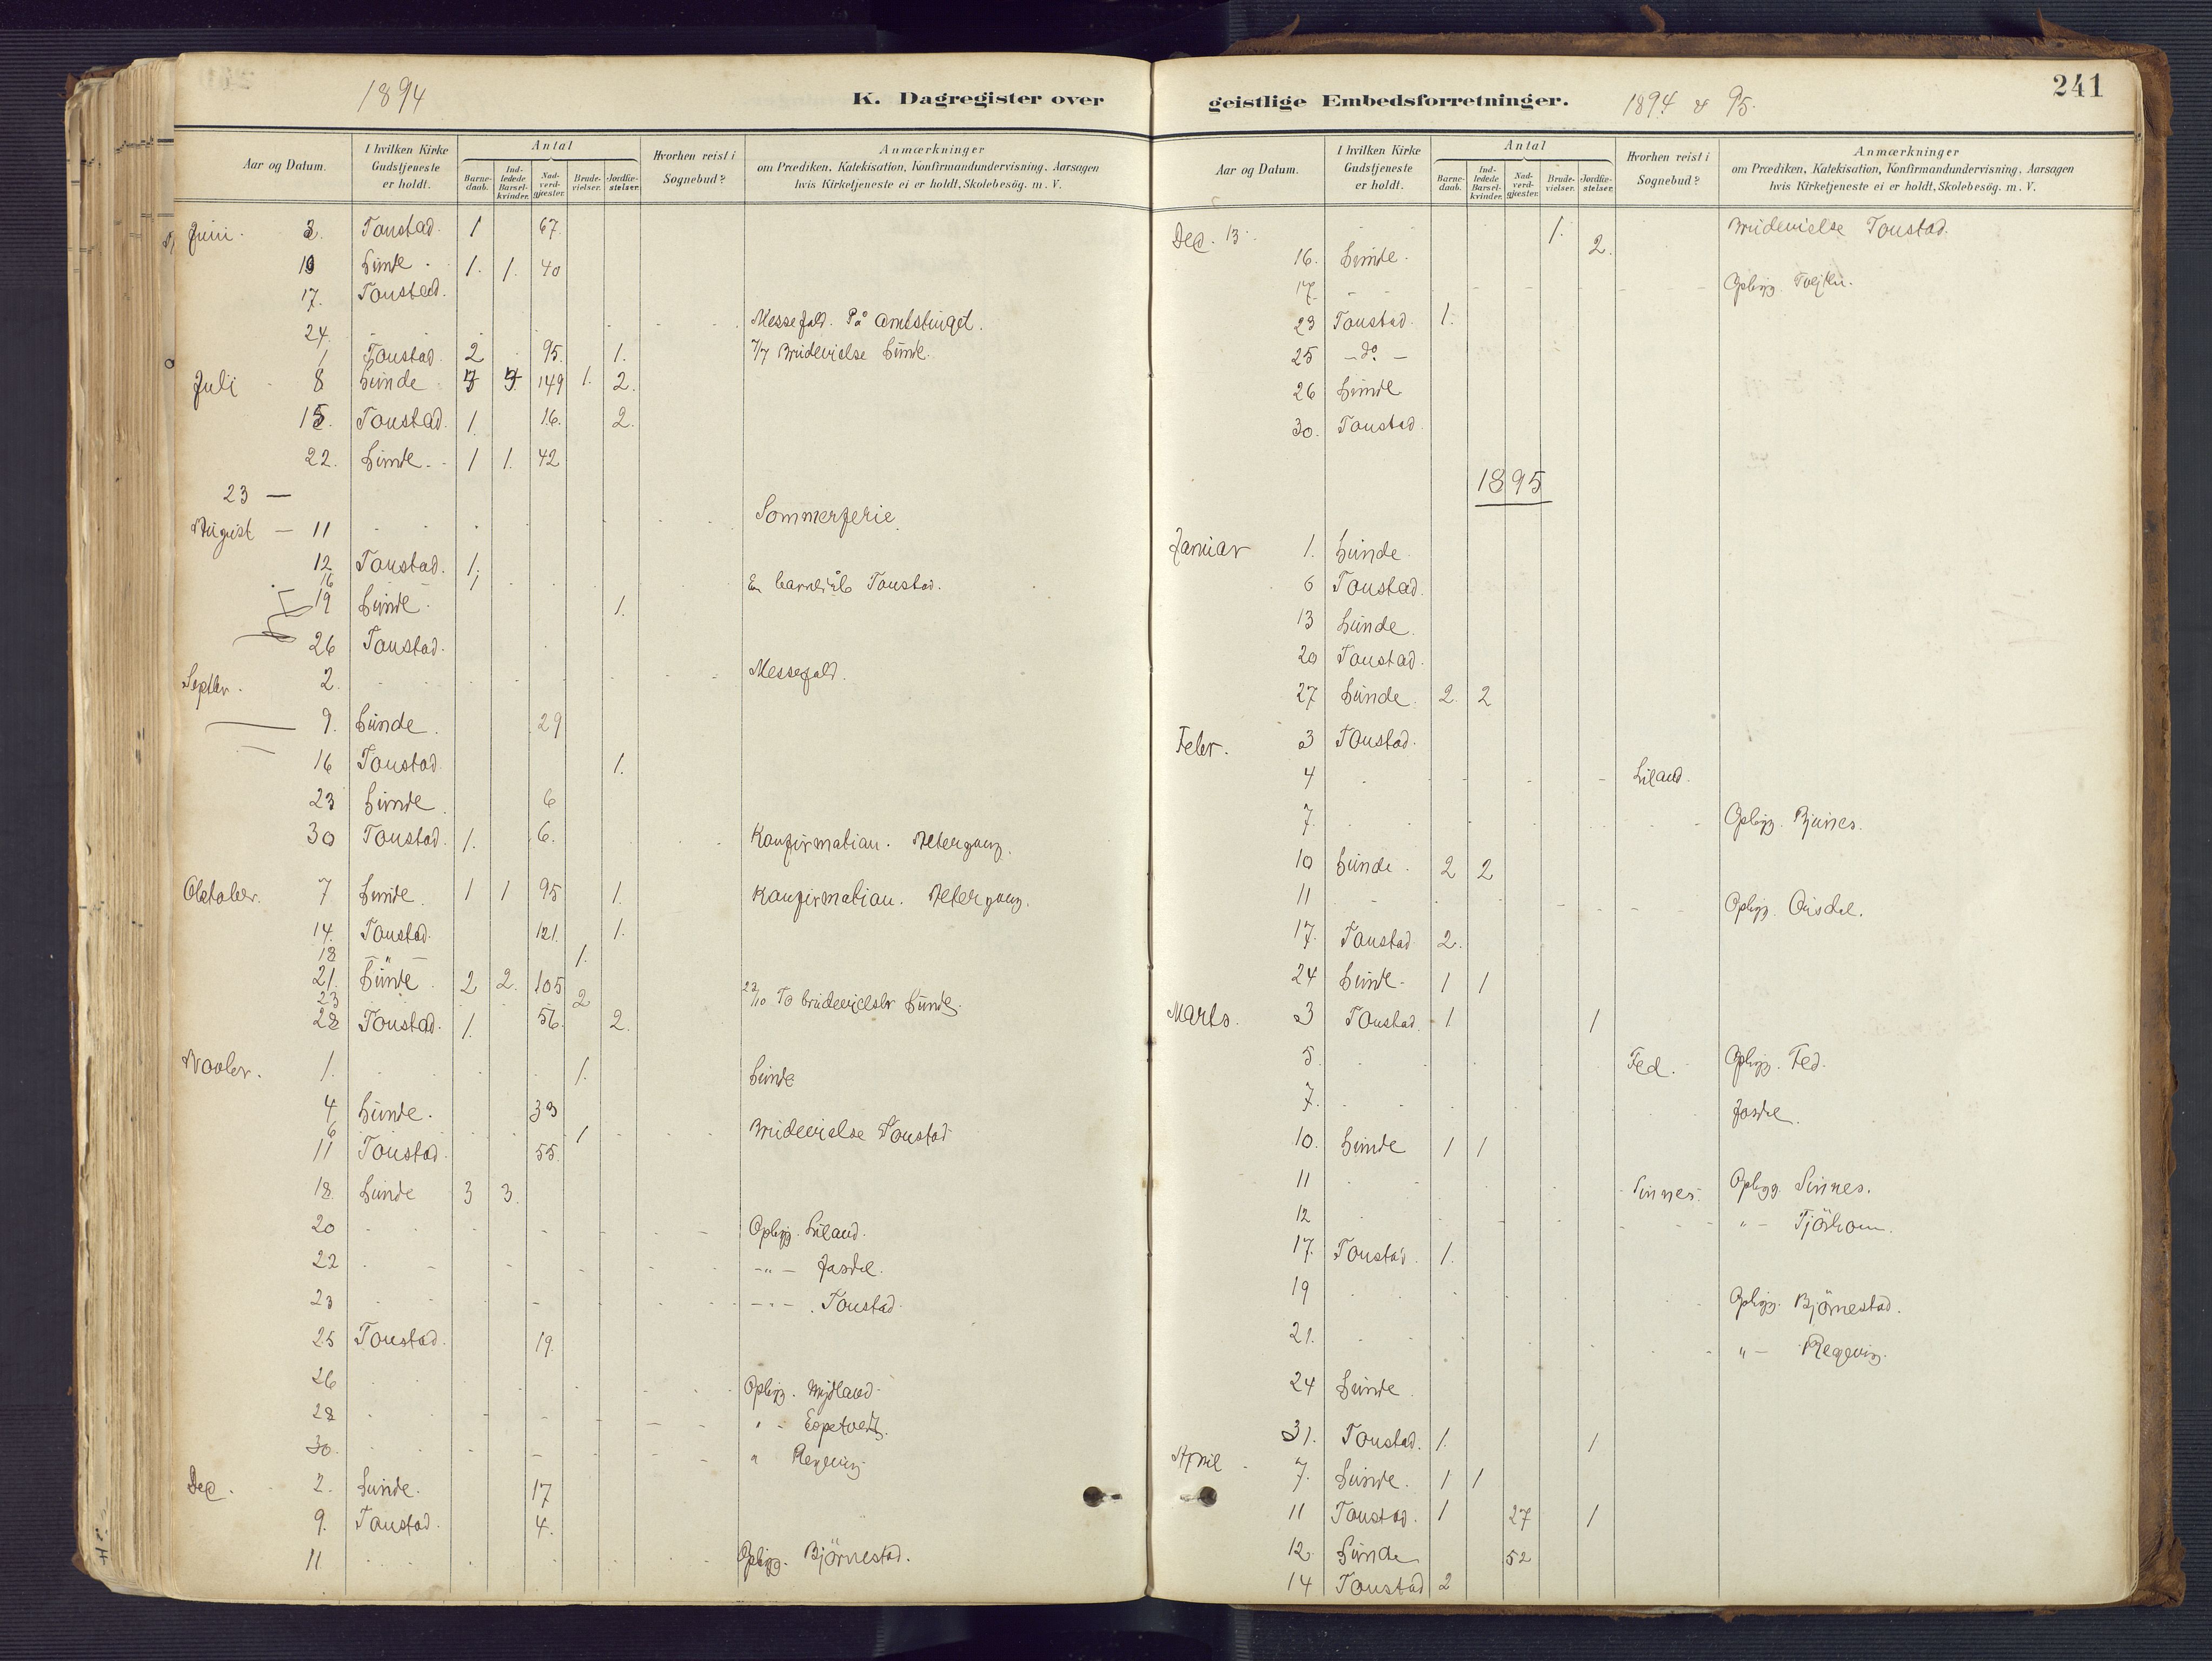 1894
K. Dagregister over
Aar og Datum.
I hvilken Kirke Gudstjeneste er holdt.
Antal
Barnedaab.
Indledede Barselkvinder.
Nadverdgjæster.
Brudevielser.
Jordfæstelser.
Hvorhen reist i Sognebud?
Anmærkninger
om Prædiken, Katekisation, Konfirmandundervisning, Aarsagen
hvis Kirketjeneste ei er holdt, Skolebesög. m. V.
Juni. 3. Tonstad. 1 67.
10 Lunde. 1. 1. 40
17. Tonstad.
24. Messefald. På amtstinget.
1 Tonstad. 2 95. 1. 7/7 Brudevielse Lunde.
Juli 8 Lunde 149 1. 2.
15. Tonstad. 1. 16. 2.
22. Lunde. 1 1. 42
23 —
August — 11 Sommerferie.
12 Tonstad. 1.
16 1 En barnedåb Tonstad.
19 Lunde. 1.
26 Tonstad.
Septbr. 2. Messefald.
9. Lunde. 29
16 Tonstad. 1.
23 Lunde. 6
30 Tonstad. 1. 6. Konfirmation. Altergang.
Oktober. 7 Lunde. 1 1 95 1. Konfirmation. Altergang.
14. Tonstad. 121. 1.
18 — " — 1.
21. Lunde. 2 2. 105
23 2 23/10 To brudevielser Lunde.
28 Tonstad. 1. 56. 2.
Novbr. 1. 1. Lunde
4 Lunde. 33
6 1 Brudevielse Tonstad
11 Tonstad. 55.
18. Lunde 3 3.
20 Opbygg. Liland.
22 -"- Josdal.
23 -"- Tonstad.
25 Tonstad. 19.
26 Opbygg. Mydland.
28 " - Espetvedt.
30. " Regevig
Dec. 2. Lunde. 17
9. Tonstad. 4.
11 Opbygg. Björnestad.
241
geistlige Embedsforretninger.
1894 & 95.
Aar og Datum.
I hvilken Kirke Gudstjeneste er holdt.
Antal
Barnedaab.
Indledede Barselkvinder.
Nadverdgjæster.
Brudevielser.
Jordfæstelser.
Hvorhen reist i Sognebud?
Anmærkninger
om Prædiken, Katekisation, Konfirmandundervisning, Aarsagen
hvis Kirketjeneste ei er holdt, Skolebesög. m. V.
Dec. 13. 1. Brudevielse Tonstad.
16. Lunde. 2.
17. Opbygg.
23 Tonstad. 1.
25 — do —
26 Lunde
30. Tonstad.
1895
Januar 1. Lunde
6 Tonstad.
13 Lunde.
20 Tonstad.
27 Lunde. 2. 2
Febr. 3 Tonstad.
4 Liland.
7. Opbygg. Bjunes.
10 Lunde. 2 2
11 Opbygg. Ousdal.
17. Tonstad 2.
24 Lunde. 1 1
Marts. 3 Tonstad. 1 1
5. Fed. Opbygg. Fed.
7. Josdal.
10. Lunde 1 1
11 Sinnes. Opbygg. Sinnes.
12 " - Tjörhom.
17. Tonstad. 1.
19 Opbygg. Björnestad.
21. " - Regevig.
24 Lunde.
31. Tonstad. 1. 1
April 7. Lunde. 1 1
11 Tonstad. 1 27 1
12. Lunde 52
14 Tonstad 2